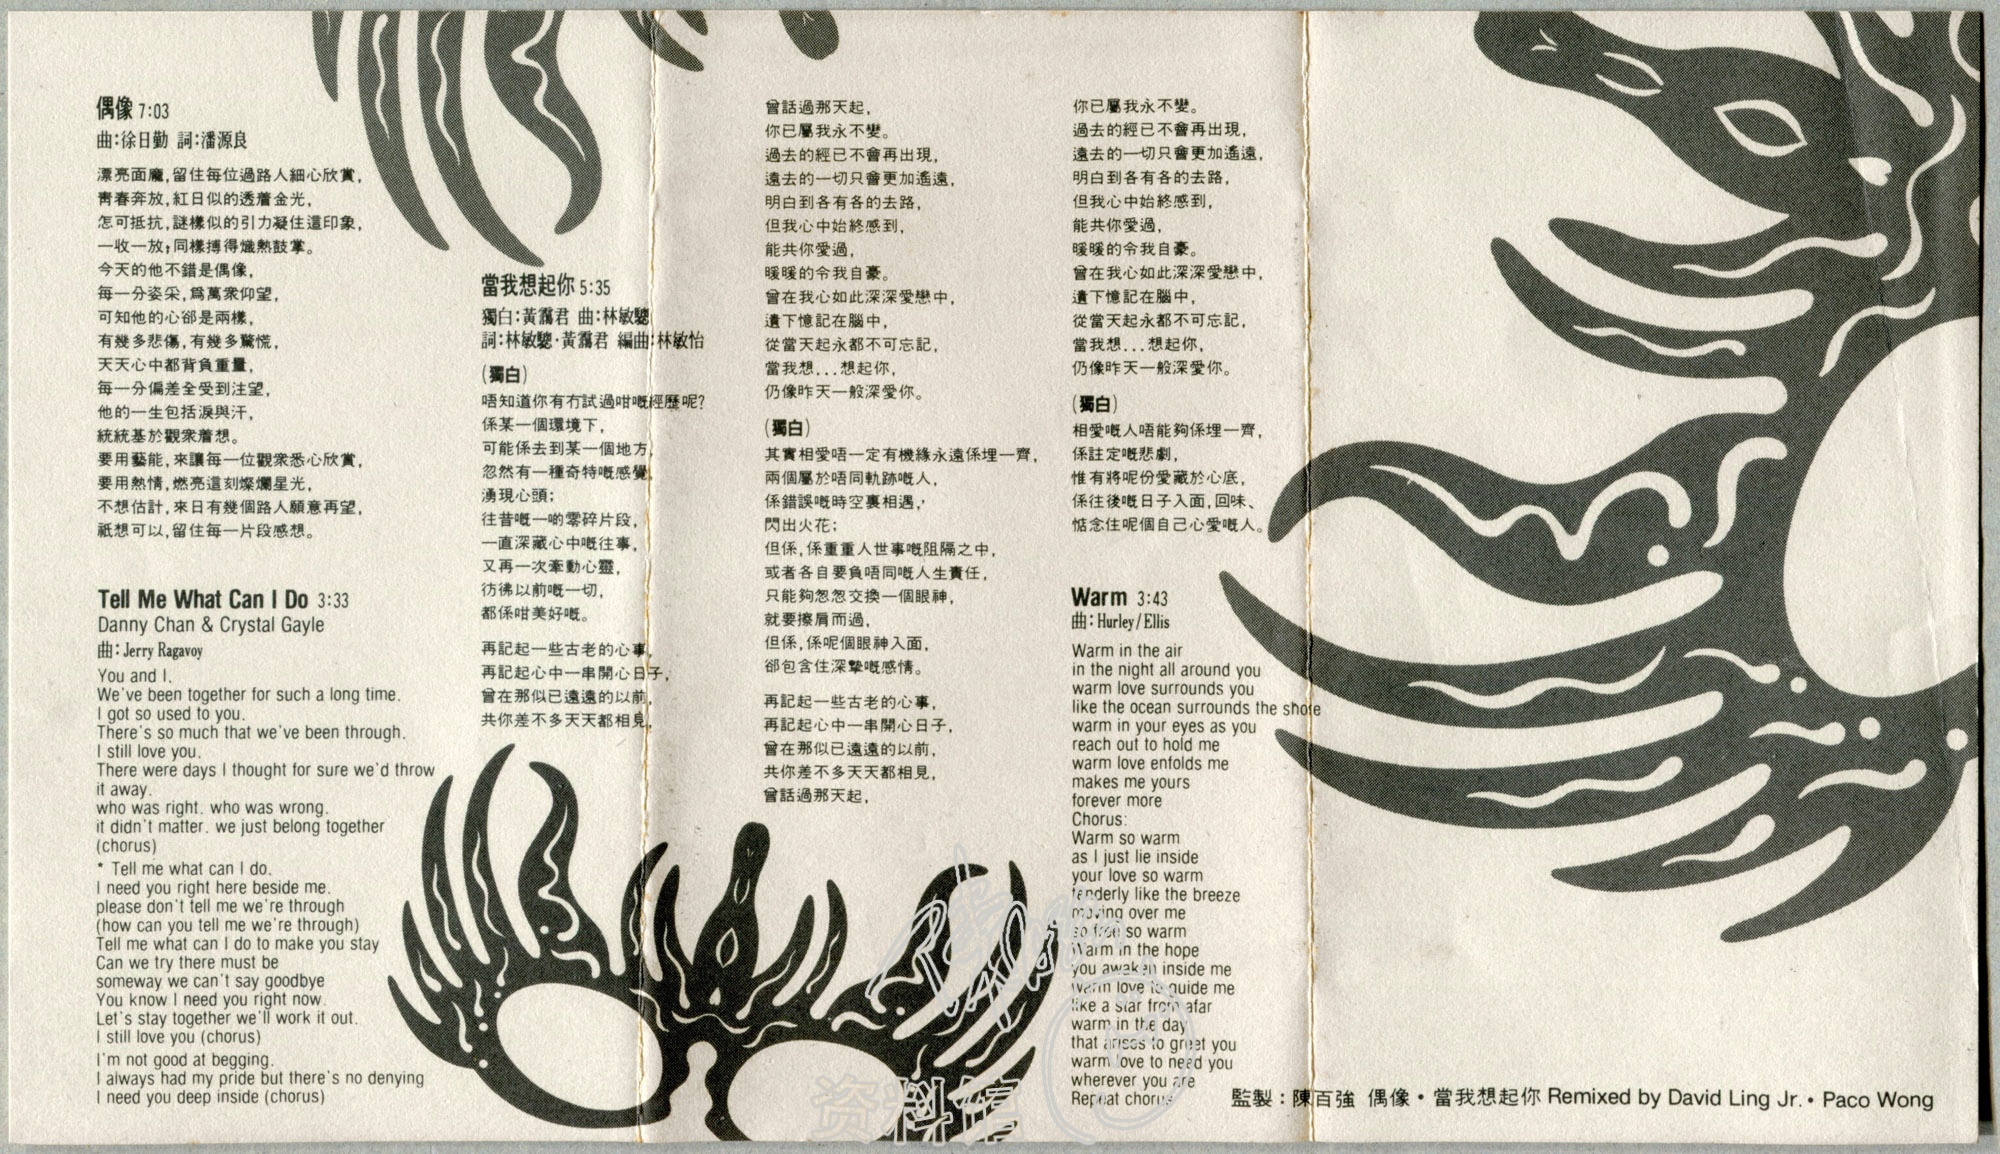 偶像 7:03
曲:徐日勤 詞:潘源良
漂亮面龐,留住每位過路人細心欣賞,
青春奔放,紅日似的透着金光,
怎可抵抗,謎樣似的引力凝住這印象,
一收一放,同樣搏得熾熱鼓掌。
今天的他不錯是偶像,
每一分姿采,爲萬衆仰望,
可知他的心郤是兩樣,
有幾多悲傷,有幾多驚慌,
天天心中都背負重量,
每一分偏差全受到注望,
他的一生包括淚與汗,
統統基於觀衆着想。
要用藝能,來讓每一位觀衆悉心欣賞,
要用熱情,燃亮這刻燦爛星光,
不想估計,來日有幾個路人願意再望,
祗想可以,留住每一片段感想。
Tell Me What Can I Do 3:33
Danny Chan & Crystal Gayle
曲:Jerry Ragavoy
You and I.
We've been together for such a long time.
I got so used to you.
There's so much that we've been through.
I still love you.
There were days I thought for sure we'd throw
it away.
who was right. who was wrong.
it didn't matter. we just belong together
(chorus)
* Tell me what can I do.
I need you right here beside me.
please don't tell me we're through
(how can you tell me we're through)
Tell me what can I do to make you stay
Can we try there must be
someway we can't say goodbye
You know I need you right now.
Let's stay together we'll work it out.
I still love you (chorus)
I'm not good at begging.
I always had my pride but there's no denying
I need you deep inside (chorus)
當我想起你 5:35
獨白:黃靄君 曲:林敏驄
詞:林敏驄·黃靄君 編曲:林敏怡
(獨白)
唔知道你有冇試過咁嘅經歷呢?
係某一個環境下,
可能係去到某一個地方,
忽然有一種奇特嘅感覺,
湧現心頭;
往昔嘅一啲零碎片段,
一直深藏心中嘅往事,
又再一次牽動心靈,
彷彿以前嘅一切,
都係咁美好嘅。
再記起一些古老的心事,
再記起心中一串開心日子,
曾在那似已遠遠的以前,
共你差不多天天都相見,
曾話過那天起,
你已屬我永不變。
過去的經已不會再出現,
遠去的一切只會更加遙遠,
明白到各有各的去路,
但我心中始終感到,
能共你愛過,
暖暖的令我自豪。
曾在我心如此深深愛戀中,
遺下憶記在腦中,
從當天起永都不可忘記,
當我想...想起你,
仍像昨天一般深愛你。
(獨白)
其實相愛唔一定有機緣永遠係埋一齊,
兩個屬於唔同軌跡嘅人,
係錯誤嘅時空裏相遇,
閃出火花;
但係,係重重人世事嘅阻隔之中,
或者各自要負唔同嘅人生責任,
只能夠怱怱交換一個眼神,
就要擦肩而過,
但係,係呢個眼神入面,
郤包含住深摯嘅感情。
再記起一些古老的心事,
再記起心中一串開心日子,
曾在那似已遠遠的以前,
共你差不多天天都相見,
曾話過那天起,
你已屬我永不變。
過去的經已不會再出現,
遠去的一切只會更加遙遠,
明白到各有各的去路,
但我心中始終感到,
能共你愛過,
暖暖的令我自豪。
曾在我心如此深深愛戀中,
遺下憶記在腦中,
從當天起永都不可忘記,
當我想...想起你,
仍像昨天一般深愛你。
(獨白)
相愛嘅人唔能夠係埋一齊,
係註定嘅悲劇,
惟有將呢份愛藏於心底,
係往後嘅日子入面,回味、
惦念住呢個自己心愛嘅人。
Warm 3:43
曲:Hurley/Ellis
Warm in the air
in the night all around you
warm love surrounds you
like the ocean surrounds the shore
warm in your eyes as you
reach out to hold me
warm love enfolds me
makes me yours
forever more
Chorus:
Warm so warm
as I just lie inside
your love so warm
tenderly like the breeze
moving over me
so free so warm
Warm in the hope
you awaken inside me
warm love to guide me
like a star from afar
warm in the day
that arises to greet you
warm love to need you
wherever you are
Repeat chorus
監製:陳百強 偶像·當我想起你 Remixed by David Ling Jr.· Paco Wong
资料馆